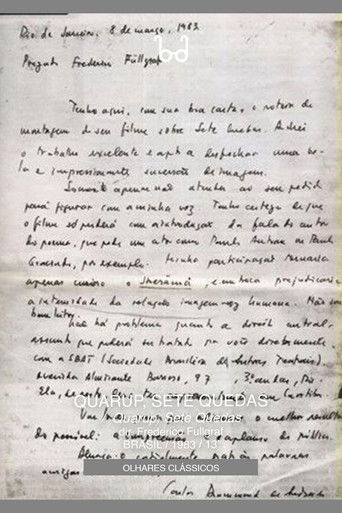 Rio de Janeiro, 8 de março, 1983
Prezado Frederico Füllgraf
Tenho aqui, com sua boa carta, o roteiro de
montagem do seu filme sobre Sete Quedas. Achei
o trabalho excelente e apto a despachar uma be-
la e impressionante sucessão de imagens.
Somente apenas não atendo ao seu pedido
para figurar com a minha voz. Tenho certeza de que
o filme só perderá com a introdução da fala do autor
do poema, que pede um ator como Paulo Autran ou Paulo
Gracindo, por exemplo. Minha participação
apenas e prejudicaria
a intensidade da relação imagem-voz humana. Não sou
bom leitor.
Não há problema quanto a direito autoral,
assunto que poderá ser tratado por você diretamente
com a SBAT (Sociedade Brasileira de Autores Teatrais),
Avenida Almirante Barroso, 97, 3º andar, Rio.
QUARUP, SETE QUEDAS
Quarup, Sete Quedas
dir. Frederico Füllgraf
BRASIL / 1983 / 13'
o melhor resulta-
do possível: a e o aplauso do público.
Abraço-o cordialmente
amigas
Carlos Drummond de Andrade
OLHARES CLÁSSICOS